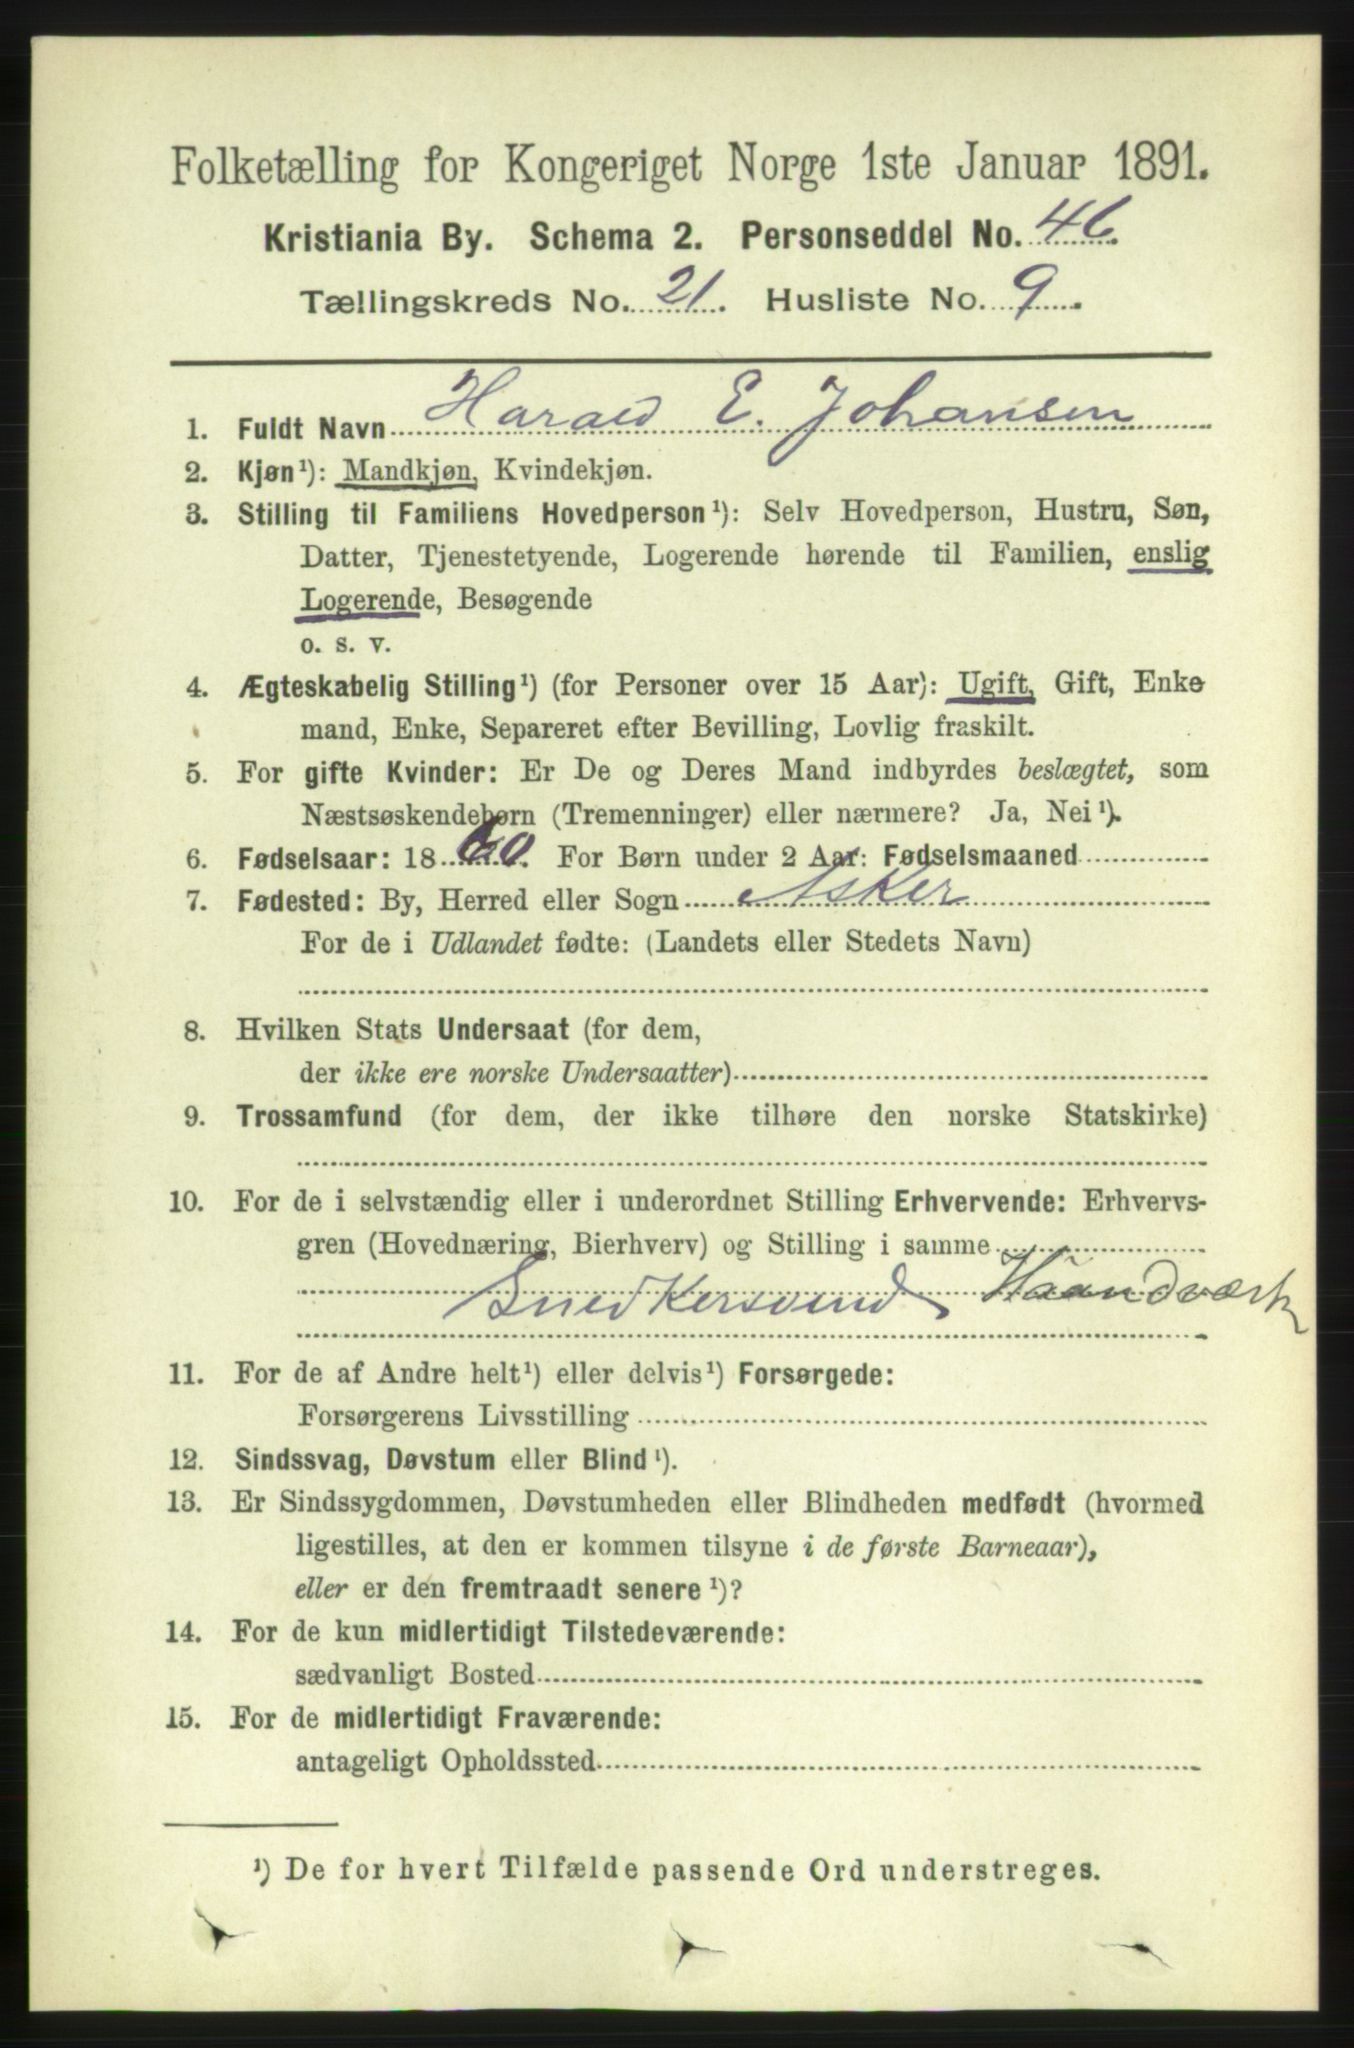 Folketælling for Kongeriget Norge 1ste Januar 1891.
Kristiania By. Schema 2. Personseddel No. 46.
Tællingskreds No. 21. Husliste No. 9.
1. Fuldt Navn Harald E. Johansen
2. Kjøn¹): Mandkjøn, Kvindekjøn.
3. Stilling til Familiens Hovedperson¹): Selv Hovedperson, Hustru, Søn,
Datter, Tjenestetyende, Logerende hørende til Familien, enslig
Logerende, Besøgende
o. s. v.
4. Ægteskabelig Stilling¹) (for Personer over 15 Aar): Ugift, Gift, Enke
mand, Enke, Separeret efter Bevilling, Lovlig fraskilt.
5. For gifte Kvinder: Er De og Deres Mand indbyrdes beslægtet, som
Næstsøskendebørn (Tremenninger) eller nærmere? Ja, Nei¹).
6. Fødselsaar: 1860. For Børn under 2 Aar: Fødselsmaaned
7. Fødested: By, Herred eller Sogn Asker
For de i Udlandet fødte: (Landets eller Stedets Navn)
8. Hvilken Stats Undersaat (for dem,
der ikke ere norske Undersaatter)
9. Trossamfund (for dem, der ikke tilhøre den norske Statskirke)
10. For de i selvstændig eller i underordnet Stilling Erhvervende: Erhvervs-
gren (Hovednæring, Bierhverv) og Stilling i samme
Snedkersvend Haandværk
11. For de af Andre helt¹) eller delvis¹) Forsørgede:
Forsørgerens Livsstilling
12. Sindssvag, Døvstum eller Blind¹).
13. Er Sindssygdommen, Døvstumheden eller Blindheden medfødt (hvormed
ligestilles, at den er kommen tilsyne i de første Barneaar),
eller er den fremtraadt senere¹)?
14. For de kun midlertidigt Tilstedeværende:
sædvanligt Bosted
15. For de midlertidigt Fraværende:
antageligt Opholdssted
¹) De for hvert Tilfælde passende Ord understreges.